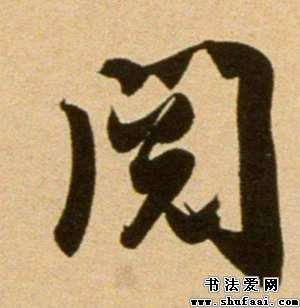 阅
书法爱网
www.shufaai.com